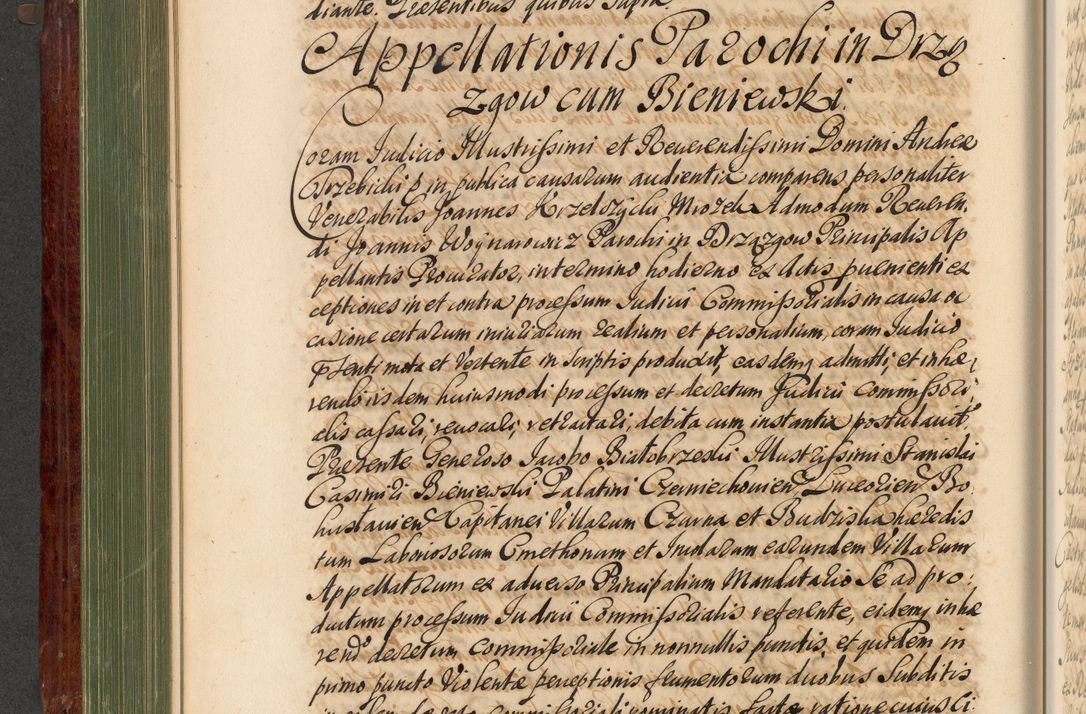 diante. Præsentibus quibus supra
Appellationis Parochi in Drzą
zgow cum Bieniewski.
Coram Judicio Illustrissimi et Reverendissimi Domini Andreæ
Trzebicki &c in publica causarum audientia comparens personaliter
Venerabilis Joannes Krzelszycki Mrozek Admodum Reveren,
di Joannis Woynarowicz Parochi in Drzązgow Principalis Ap
pellantis Procurator, in termino hodierno ex Actis pvenienti ex
ceptiones in et contra processum Judicii Commissorialis in causa oc
casione certarum iniuriarum realium et personalium, coram Judicio
pñti mota et Vertente in scriptis produxit, easdemq admitti, et inhæ,
rendo iisdem huiusmodi processum et decretum Judicii commissori,
alis cassari, revocari, retractari, debita cum instantia postulavit.
Præsente Generoso Jacobo Białobrzeski Illustrissimi Stanislai
Casimiri Bieniewski Palatini Czerniechovien Luceorien Bo
huslavien Capitanei Villarum Czarna et Budziska hæredis
tum Laboriosorum Cmethonum et Incolarum earundem Villarum
Appellatorum ex adverso Principalium Mandatario Se ad pro,
ductum processum Judicii Commissorialis referente, eidemq inhæ
rend decretum Commissoriale in nonnullis punctis, et quidem in
primo puncto Violentæ perceptionis frumentorum duobus Subditis
commissoriali nominatis factæ ratione cuius Ci